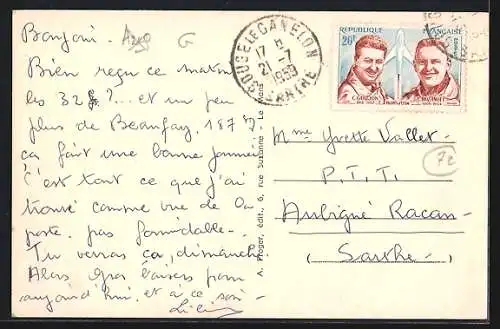 Bonjour. A220 G
Bien reçu ce matin
les 32 ?... et un peu
plus de Beaufay, 187
ça fait une bonne journée
C'est tout ce que j'ai
trouvé comme vue de la
poste, pas formidable.
Tu verras ça, dimanche.
Alors gros baisers pour
aujourd'hui, et à ce soir.
BOUSSE LE CANELON
17 H
21-7
1959
SARTHE
REPUBLIQUE FRANÇAISE
20F
POSTES
A. Proger, édit., 6, rue Suzanne - Le Mans
Mme Yvette Vallet
72
P.T.T.
Aubigné Racan
(Sarthe)